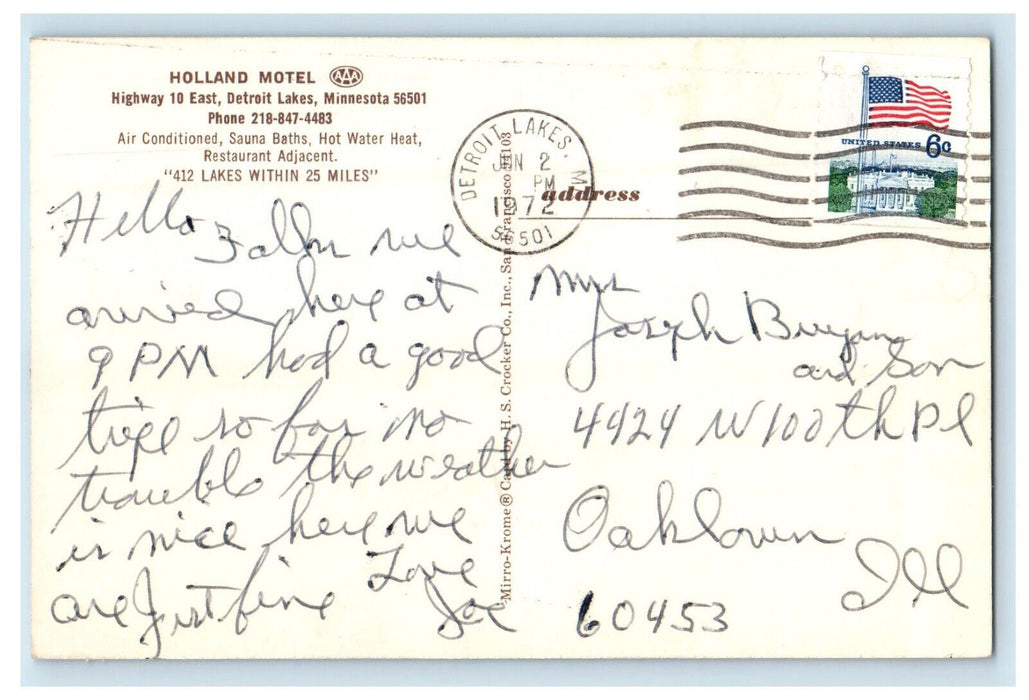 HOLLAND MOTEL AAA
Highway 10 East, Detroit Lakes, Minnesota 56501
Phone 218-847-4483
Air Conditioned, Sauna Baths, Hot Water Heat,
Restaurant Adjacent.
"412 LAKES WITHIN 25 MILES"
Hello Folks we
arrived here at
9 PM had a good
trip so far no
trouble the weather
is nice here we
are Just fine
Love
Joe
Mirro-Krome® Card by H. S. Crocker Co., Inc., San Francisco 94103
DETROIT LAKES, M
JUN 2
PM
1972
56501
UNITED STATES 6c
address
Mrs
Joseph
and Son
4424 W 100th Pl
Oaklawn
Ill
60453